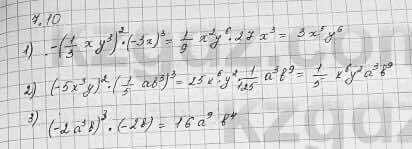 7.10
1) -(1/3 xy³)² · (-3x)³ = 1/9 x²y⁶ · 27 x³ = 3x⁵y⁶
2) (-5x³y)² · (1/5 ab³)³ = 25x⁶y² · 1/125 a³b⁹ = 1/5 x⁶y²a³b⁹
3) (-2a³b)³ · (-2b) = 16a⁹ b⁴